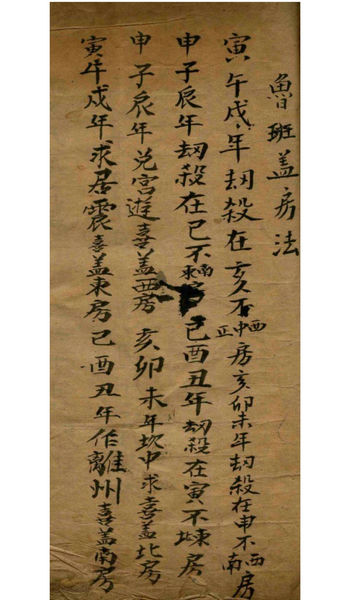 魯班盖房法
寅午戌年刼殺在亥不西中正房亥卯未年刼殺在申不西南房
申子辰年刼殺在巳不南東巳酉丑年刼殺在寅不房
申子辰年兑宫逰喜盖西房亥卯未年坎中求喜盖北房
寅午戌年求居震喜盖東房巳酉丑年作離州喜盖南房